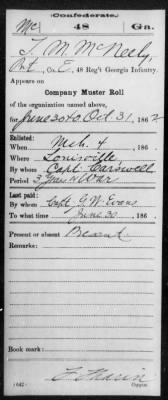 (Confederate.)
Mc 48 Ga.
T. M. McNeely,
Pvt, Co. E, 48 Reg't Georgia Infantry.
Appears on
Company Muster Roll
of the organization named above,
for June 30 to Oct 31, 1862
Enlisted:
When Mch. 4, 186
Where Louisville,
By whom Capt. Carswell
Period 3 years or War
Last paid:
By whom Capt. G. W. Evans
To what time June 30, 186
Present or absent Present
Remarks:
Book mark:
(642) Copyist.